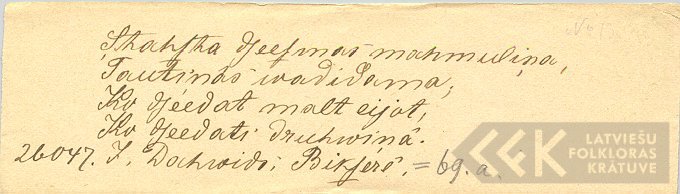 Skahsta dseesmas mahmuliņa,
Tautinâs wadidama;
Ko dseedat malt eijot,
Ko dseedati druhwinâ.
26047. J. Dahwids, Bikserê. = 69. a.
LATVIEŠU
FOLKLORAS
KRĀTUVE